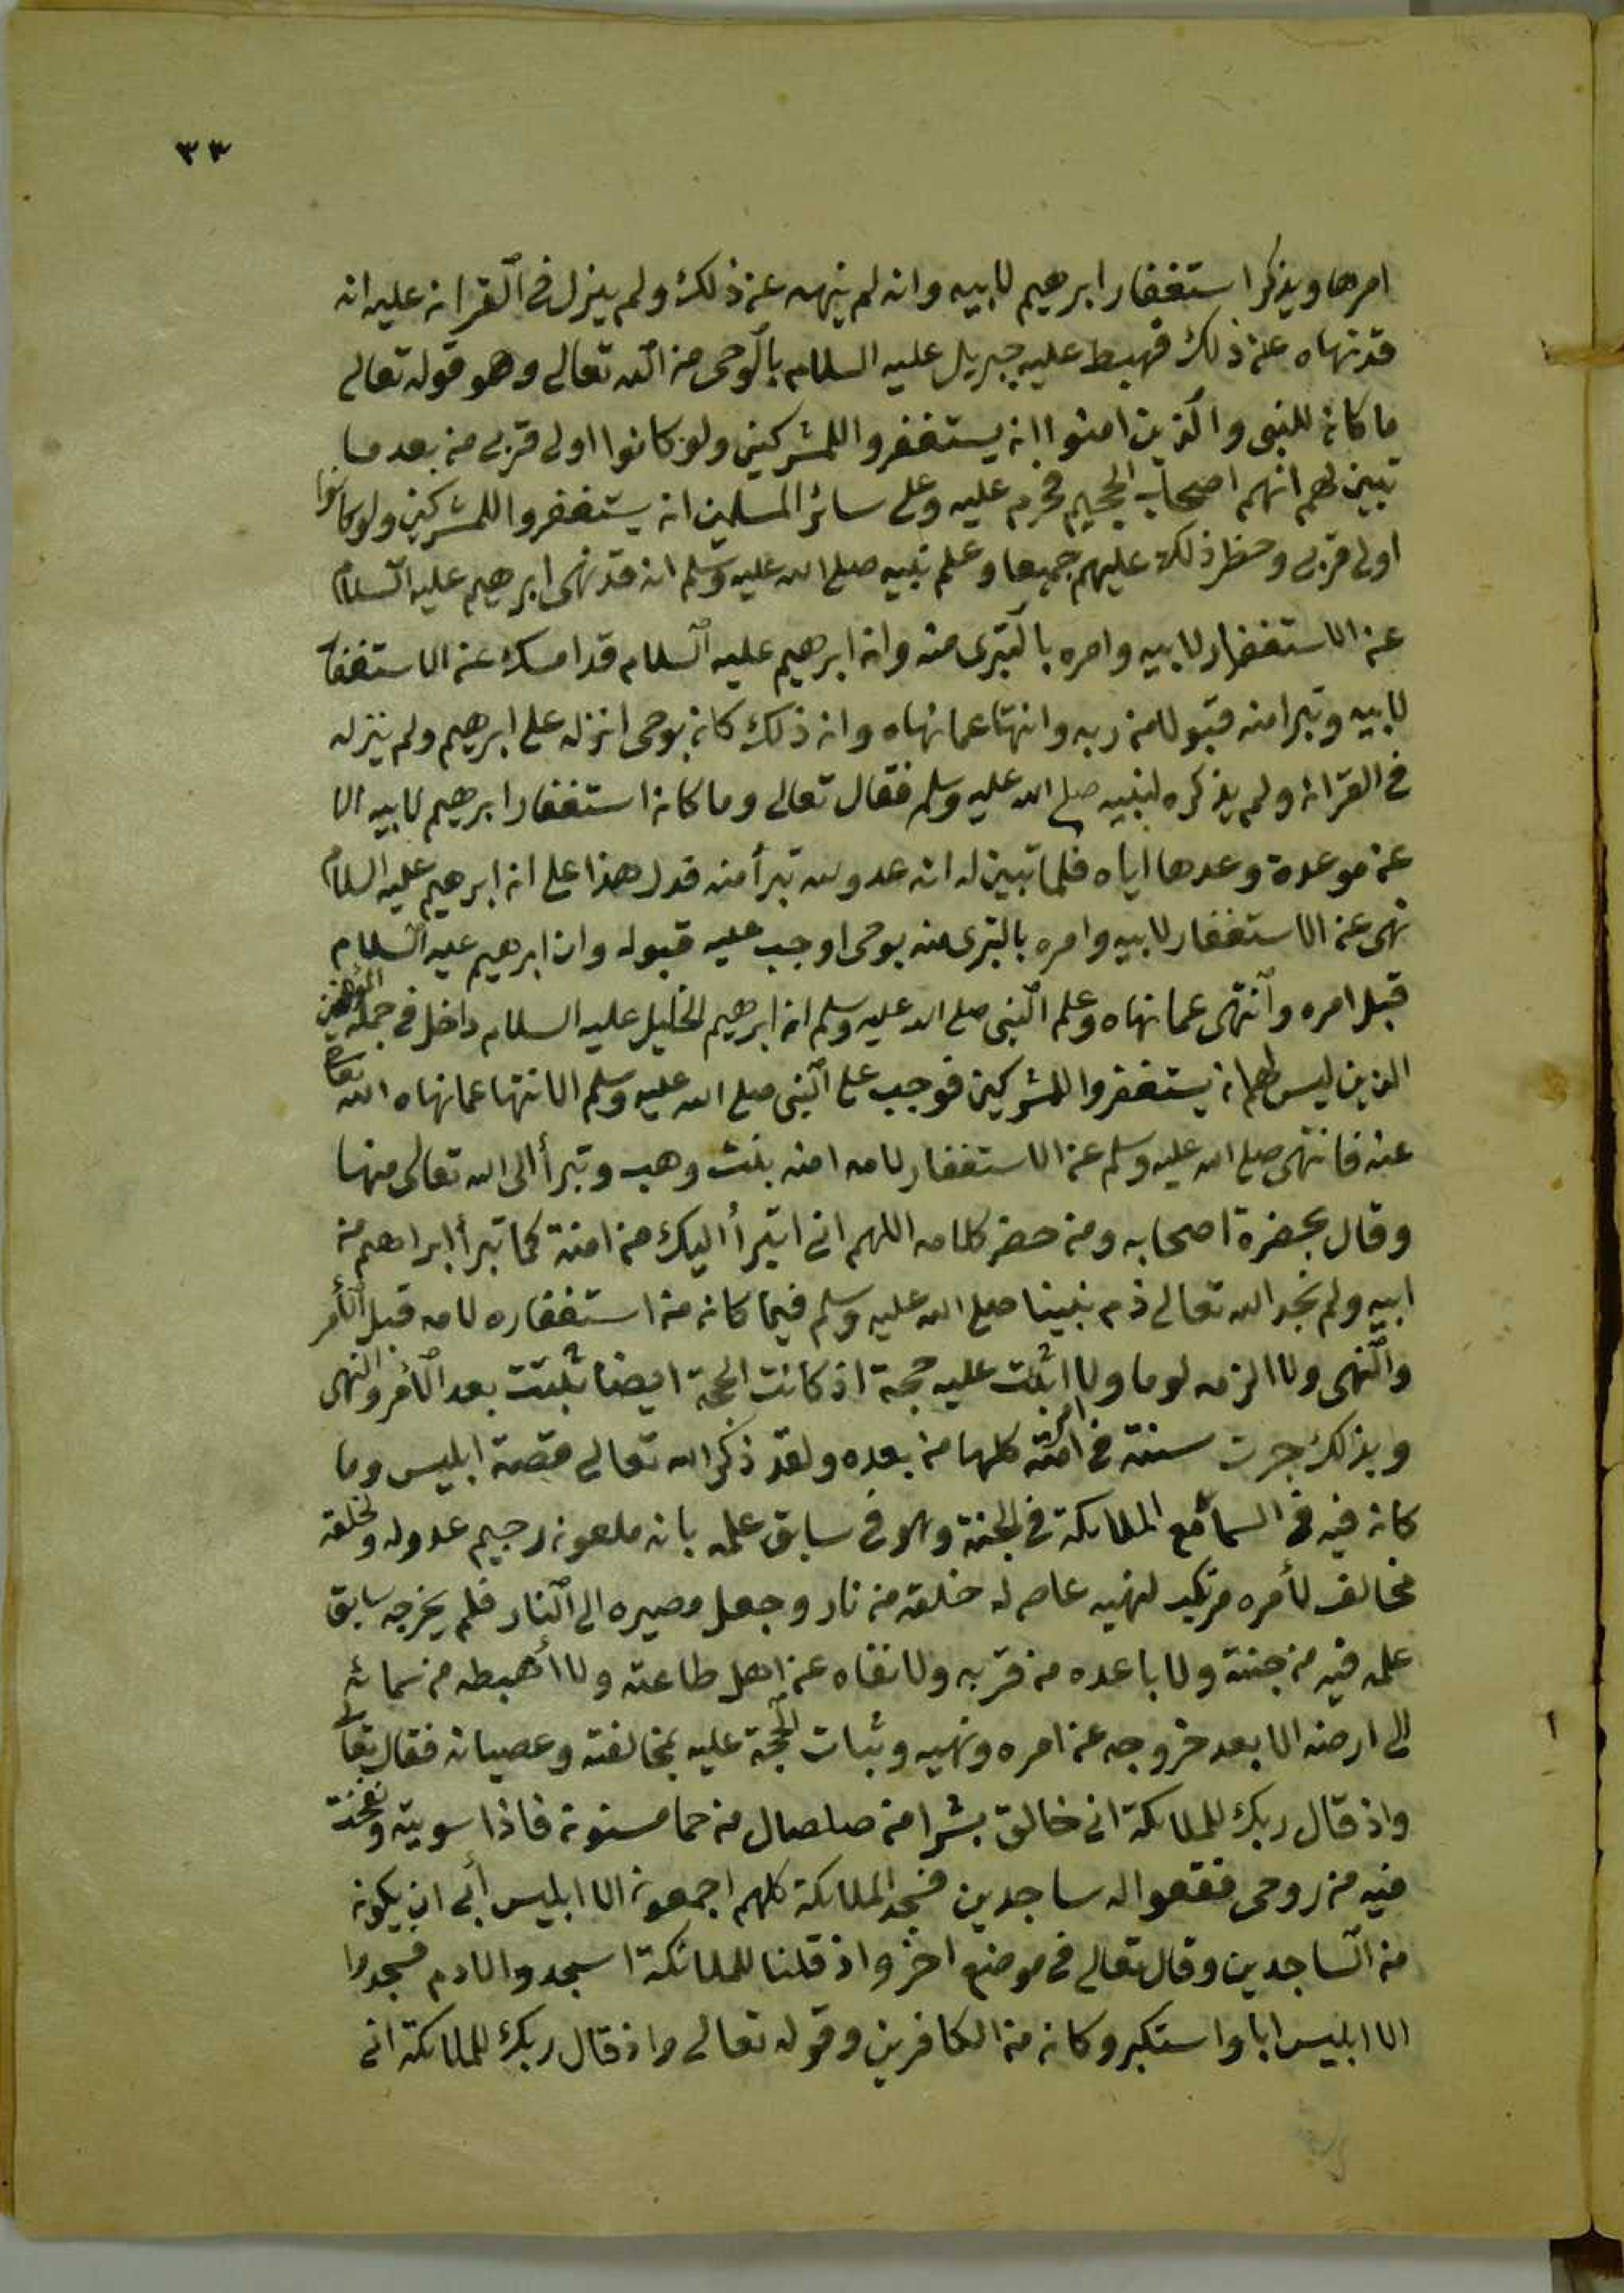 ٣٣
امرها ويذكر استغفار ابرهيم لابيه وانه لم ينهه عن ذلك ولم ينزل في القران عليه انه
قد نهاه عن ذلك فهبط عليه جبريل عليه السلام بالوحى من الله تعالى وهو قوله تعالى
ما كان للنبى والذين امنوا ان يستغفروا للمشركين ولو كانوا اولى قربى من بعد ما
تبين لهم انهم اصحاب الجحيم فحرم عليه وعلى سائر المسلمين ان يستغفروا للمشركين ولو كانوا
اولى قربى وحظر ذلك عليهم جميعا وعلم نبيه صلى الله عليه وسلم انه قد نهى ابرهيم عليه السلام
عن الاستغفار لابيه وامره بالتبرى منه وان ابرهيم عليه السلام قد امسك عن الاستغفار
لابيه وتبرا منه قبولا من ربه وانتها عما نهاه وان ذلك كان بوحى انزله على ابرهيم ولم ينزله
في القران ولم يذكره لنبيه صلى الله عليه وسلم فقال تعالى وما كان استغفار ابرهيم لابيه الا
عن موعدة وعدها اياه فلما تبين له انه عدو لله تبرأ منه فدل هذا على ان ابرهيم عليه السلام
نهى عن الاستغفار لابيه وامره بالتبرى منه بوحى اوجب عليه قبوله وان ابرهيم عليه السلام
قبل امره وانتهى عما نهاه وعلم النبى صلى الله عليه وسلم ان ابرهيم الخليل عليه السلام داخل في جملة المؤمنين
الذين ليس لهم ان يستغفروا للمشركين فوجب على النبى صلى الله عليه وسلم الانتها عما نهاه الله تعالى
عنه فانتهى صلى الله عليه وسلم عن الاستغفار لامه امنه بنت وهب وتبرأ الى الله تعالى منها
وقال بحضرة اصحابه ومن حضر كلامه اللهم انى اتبرأ اليك من امنة كما تبرأ ابراهيم من
ابيه ولم نجد الله تعالى ذم نبينا صلى الله عليه وسلم فيما كان من استغفاره لامه قبل الأمر
والنهى ولا الزمه لوما ولا اثبت عليه حجة اذ كانت الحجة ايضا تثبت بعد الأمر والنهى
وبذلك جرت سنته في امته كلها من بعده ولقد ذكر الله تعالى قصة ابليس وما
كان فيه في السما مع الملائكة في الجنة وهو في سابق علمه بانه ملعون رجيم عدو له ولخلقه
مخالف لأمره مرتكب لنهيه عاص له خلقه من نار وجعل مصيره الى النار فلم يخرجه سابق
علمه فيه من جنته ولا باعده من قربه ولا نفاه عن اهل طاعته ولا أهبطه من سمائه
الى ارضه الا بعد خروجه عن امره ونهيه وثبات الحجة عليه بمخالفته وعصيانه فقال تعالى
واذ قال ربك للملائكة انى خالق بشرا من صلصال من حما مسنون فاذا سويته ونفخت
فيه من روحى فقعوا له ساجدين فسجد الملائكة كلهم اجمعون الا ابليس أبى ان يكون
من الساجدين وقال تعالى في موضع اخر واذ قلنا للملائكة اسجدوا لادم فسجدوا
الا ابليس ابا واستكبر وكان من الكافرين وقوله تعالى واذ قال ربك للملائكة انى